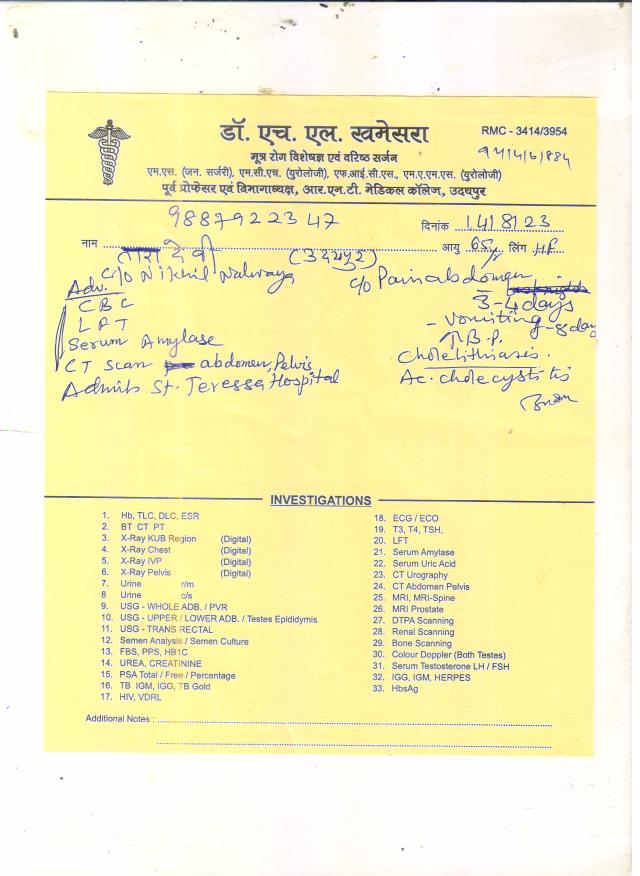 डॉ. एच. एल. खमेसरा
RMC - 3414/3954
मूत्र रोग विशेषज्ञ एवं वरिष्ठ सर्जन
एम.एस. (जन. सर्जरी), एम.सी.एच. (युरोलोजी), एफ.आई.सी.एस., एम.ए.एम.एस. (युरोलोजी)
पूर्व प्रोफेसर एवं विभागाध्यक्ष, आर.एन.टी. मेडिकल कॉलेज, उदयपुर
9887922347
दिनांक 14/8/23
नाम तारा देवी (उदयपुर) आयु 65/ लिंग
c/o Nikhil Nalwaya
c/o Pain abdomen
Adv.
3-4 days
CBC
- Vomiting
LFT
↑B.P.
Serum Amylase
Cholelithiasis.
CT Scan abdomen, Pelvis
Ac. cholecystitis
Admits St. Teressa Hospital
INVESTIGATIONS
1. Hb, TLC, DLC, ESR
2. BT CT PT
3. X-Ray KUB Region (Digital)
4. X-Ray Chest (Digital)
5. X-Ray IVP (Digital)
6. X-Ray Pelvis (Digital)
7. Urine r/m
8 Urine c/s
9. USG - WHOLE ADB. / PVR
10. USG - UPPER / LOWER ADB. / Testes Epididymis
11. USG - TRANS RECTAL
12. Semen Analysis / Semen Culture
13. FBS, PPS, HB1C
14. UREA, CREATININE
15. PSA Total / Free / Percentage
16. TB IGM, IGG, TB Gold
17. HIV, VDRL
18. ECG / ECO
19. T3, T4, TSH,
20. LFT
21. Serum Amylase
22. Serum Uric Acid
23. CT Urography
24. CT Abdomen Pelvis
25. MRI, MRI-Spine
26. MRI Prostate
27. DTPA Scanning
28. Renal Scanning
29. Bone Scanning
30. Colour Doppler (Both Testes)
31. Serum Testosterone LH / FSH
32. IGG, IGM, HERPES
33. HbsAg
Additional Notes :